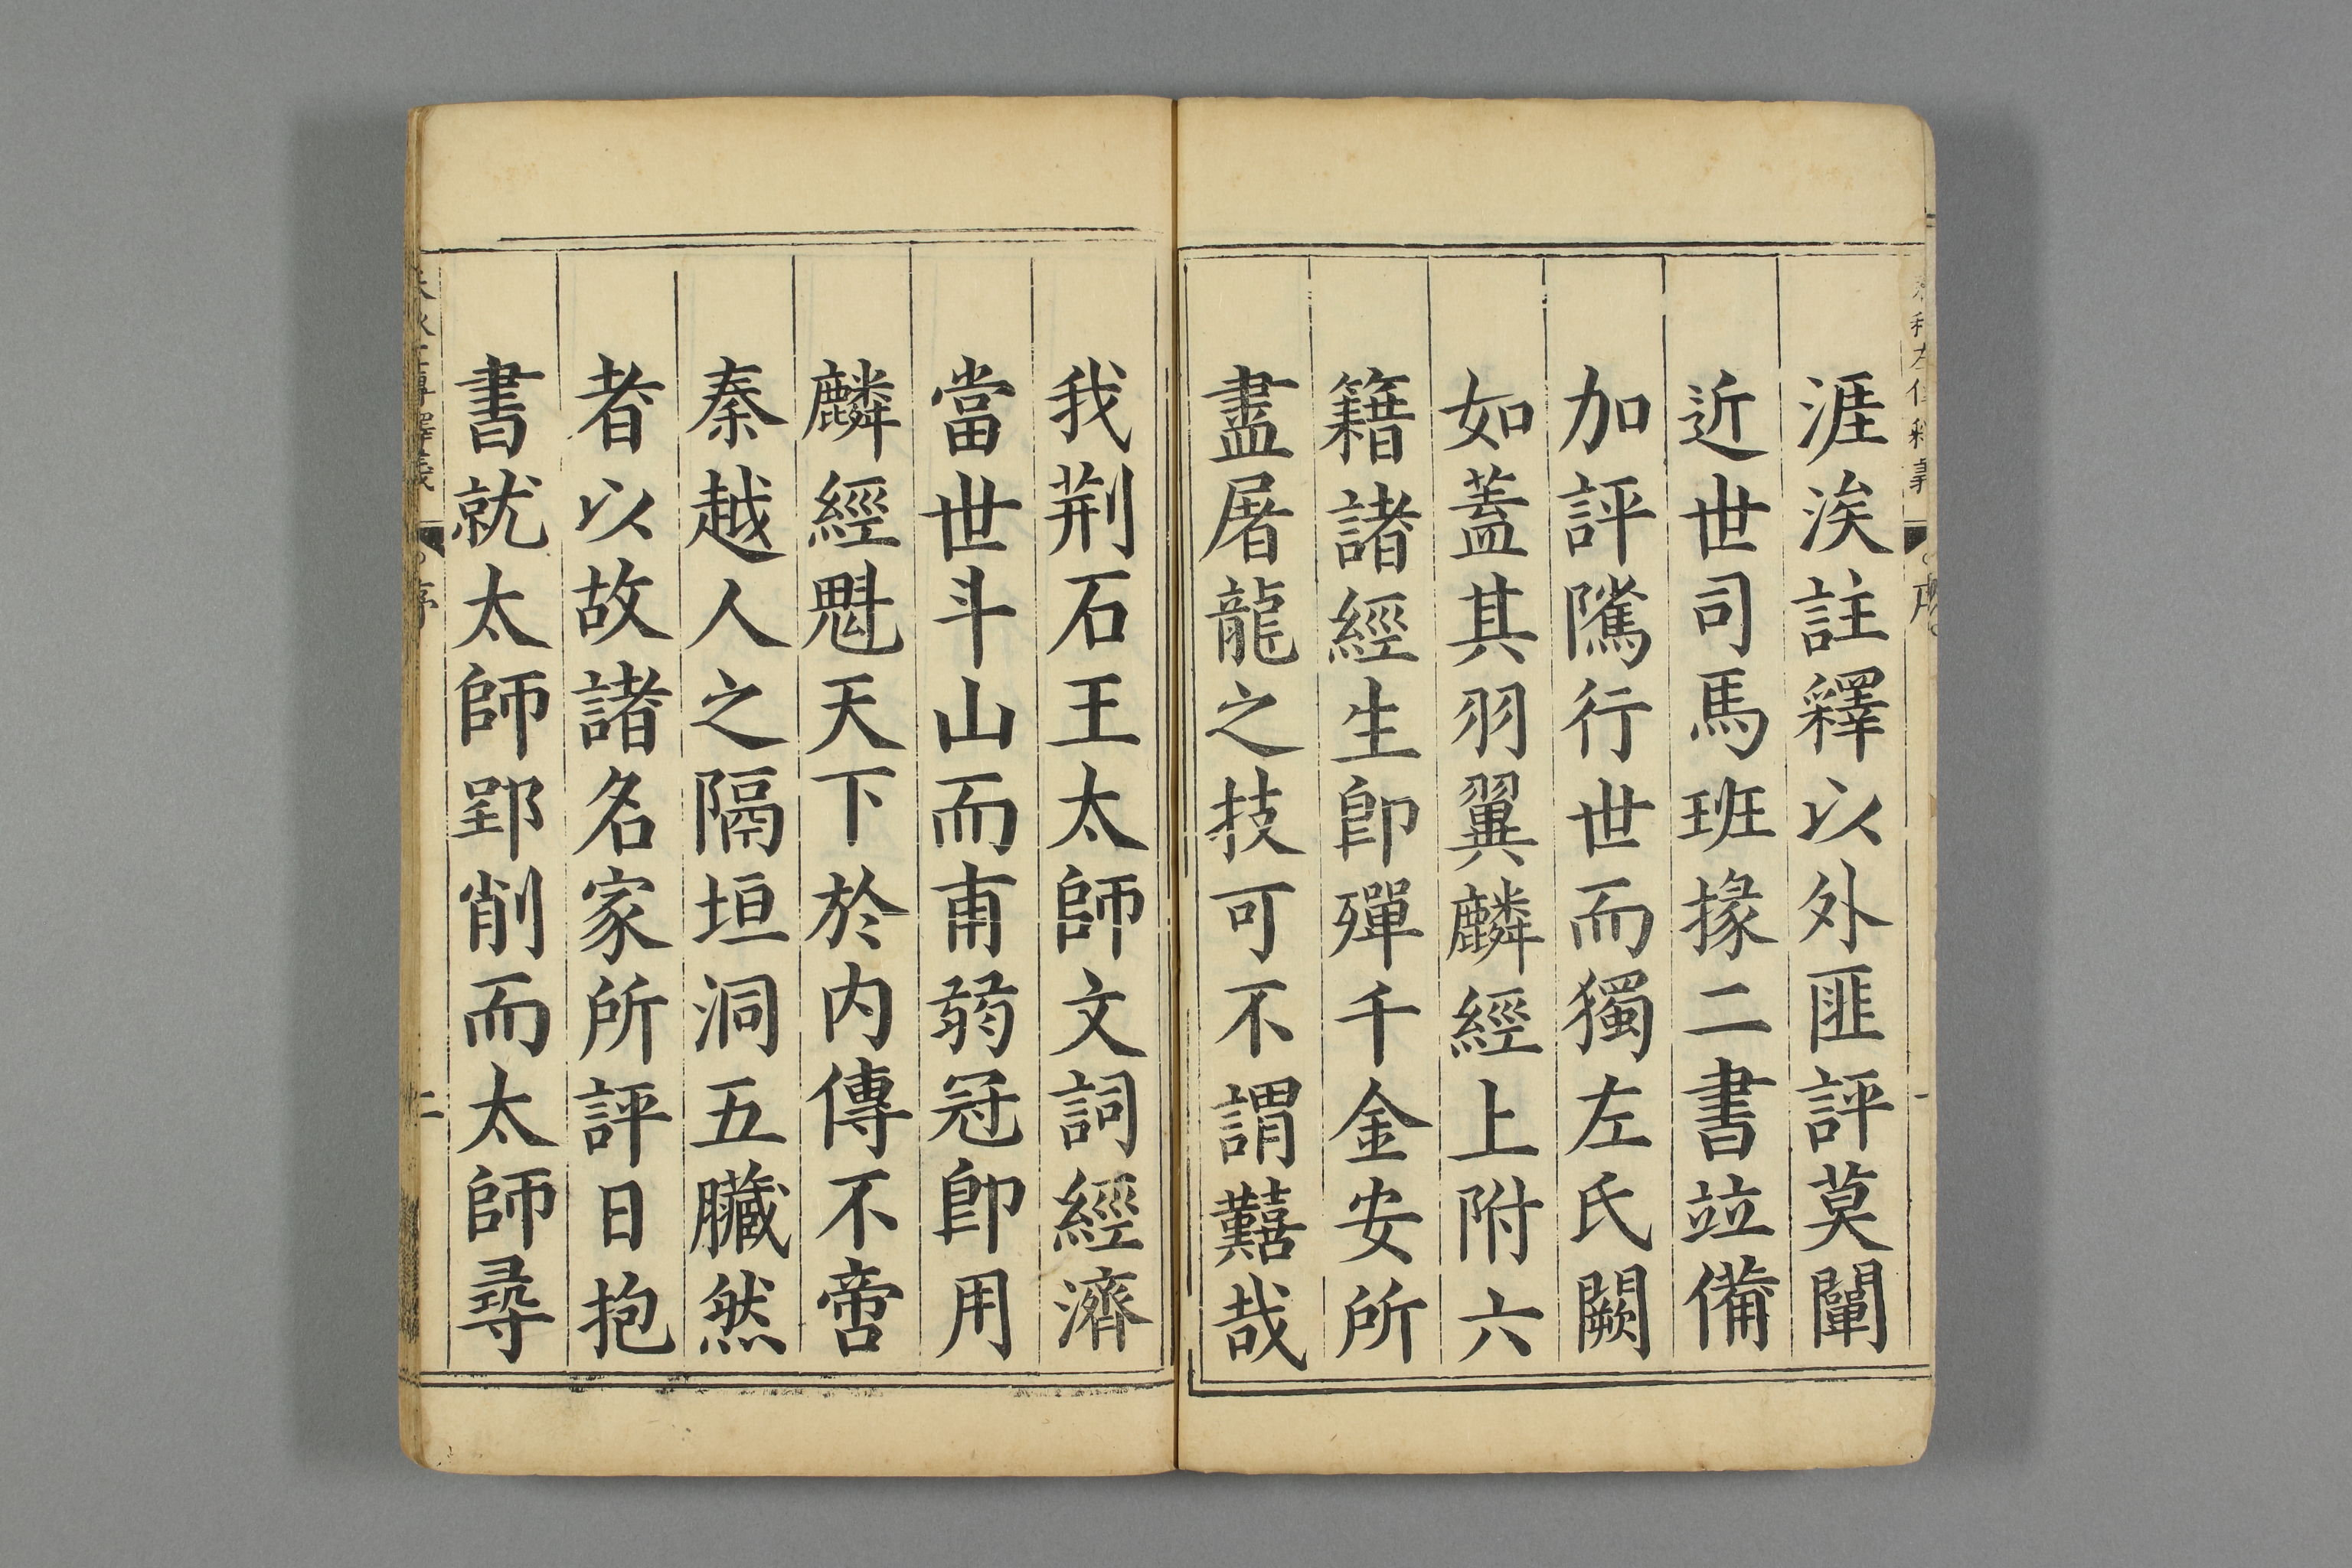 涯涘註釋以外匪評莫闡
近世司馬班掾二書竝備
加評隲行世而獨左氏闕
如蓋其羽翼麟經上附六
籍諸經生卽殫千金安所
盡屠龍之技可不謂囏哉
我荆石王太師文詞經濟
當世斗山而甫弱冠卽用
麟經魁天下於内傳不啻
秦越人之隔垣洞五臟然
者以故諸名家所評日抱
書就太師郢削而太師尋